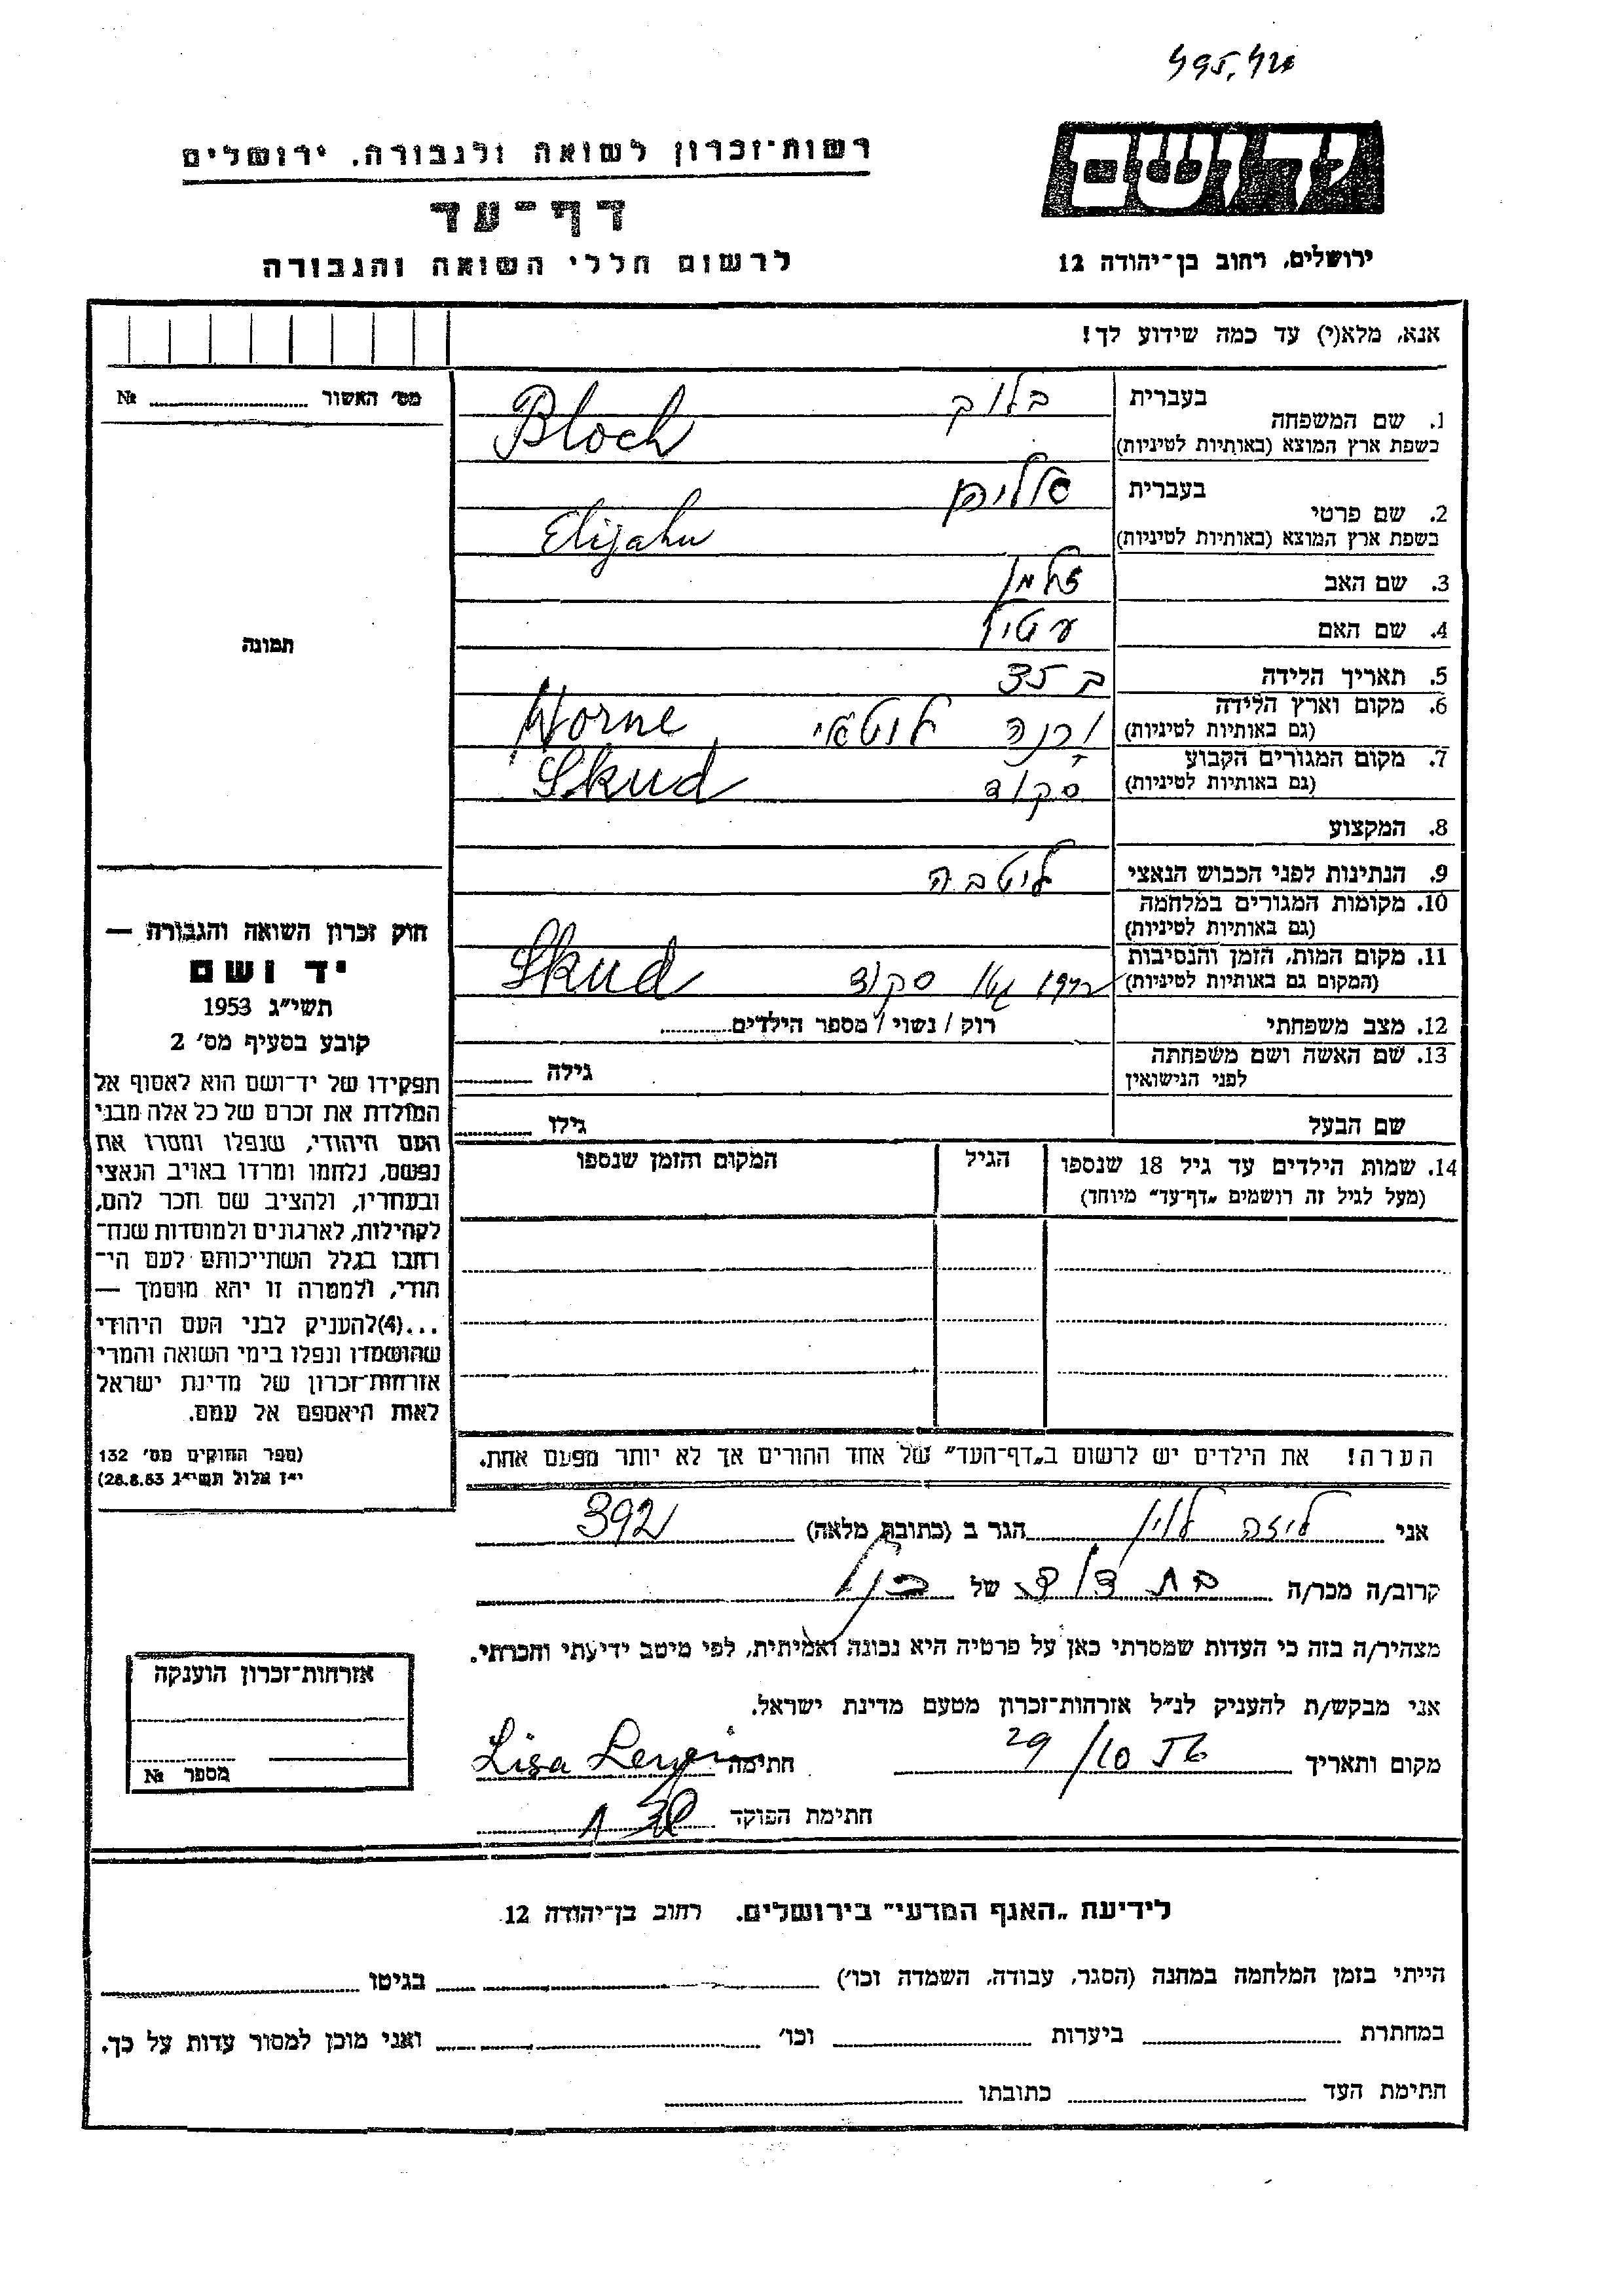 רשות־זכרון לשואה ולגבורה, ירושלים
יד ושם
דף־עד
לרשום חללי השואה והגבורה
ירושלים, רחוב בן־יהודה 12
אנא, מלא(י) עד כמה שידוע לך!
מס׳ האשור № 
תמונה
1. שם המשפחה
בעברית בלוק
בשפת ארץ המוצא (באותיות לטיניות) Bloch
2. שם פרטי
בעברית
בשפת ארץ המוצא (באותיות לטיניות) Elijahu
3. שם האב זלמן
4. שם האם
5. תאריך הלידה ב 35
6. מקום וארץ הלידה
(גם באותיות לטיניות) ורנה Worne
7. מקום המגורים הקבוע
(גם באותיות לטיניות) סקוד Skud
8. המקצוע
9. הנתינות לפני הכבוש הנאצי ליטבה
10. מקומות המגורים במלחמה
(גם באותיות לטיניות)
11. מקום המות, הזמן והנסיבות
(המקום גם באותיות לטיניות) סקוד Skud
12. מצב משפחתי רוק / נשוי / מספר הילדים
13. שם האשה ושם משפחתה
לפני הנישואין גילה
שם הבעל גילו
14. שמות הילדים עד גיל 18 שנספו
(מעל לגיל זה רושמים „דף־עד” מיוחד)
הגיל
המקום והזמן שנספו
חוק זכרון השואה והגבורה —
יד ושם
תשי״ג 1953
קובע בסעיף מס׳ 2
תפקידו של יד־ושם הוא לאסוף אל
המולדת את זכרם של כל אלה מבני
העם היהודי, שנפלו ומסרו את
נפשם, נלחמו ומרדו באויב הנאצי
ובעוזריו, ולהציב שם וזכר להם,
לקהילות, לארגונים ולמוסדות שנח־
רבו בגלל השתייכותם לעם הי־
הודי, ולמטרה זו יהא מוסמך —
...(4) להעניק לבני העם היהודי
שהושמדו ונפלו בימי השואה והמרי
אזרחות־זכרון של מדינת ישראל
לאות היאספם אל עמם.
(ספר החוקים מס׳ 132
י״ז אלול תשי״ג 28.8.53)
הערה! את הילדים יש לרשום ב„דף־העד” של אחד ההורים אך לא יותר מפעם אחת.
אני ליזה לוין הגר ב (כתובת מלאה) 392
קרוב/ה מכר/ה בת דוד של
מצהיר/ה בזה כי העדות שמסרתי כאן על פרטיה היא נכונה ואמיתית, לפי מיטב ידיעתי והכרתי.
אני מבקש/ת להעניק לנ״ל אזרחות־זכרון מטעם מדינת ישראל.
מקום ותאריך 29/10 חתימה Lisa Lewin
חתימת הפוקד
אזרחות־זכרון הוענקה
מספר №
לידיעת „האגף המדעי” בירושלים, רחוב בן־יהודה 12
הייתי בזמן המלחמה במחנה (הסגר, עבודה, השמדה וכו׳) בגיטו
במחתרת ביערות וכו׳ ואני מוכן למסור עדות על כך.
חתימת העד כתובתו